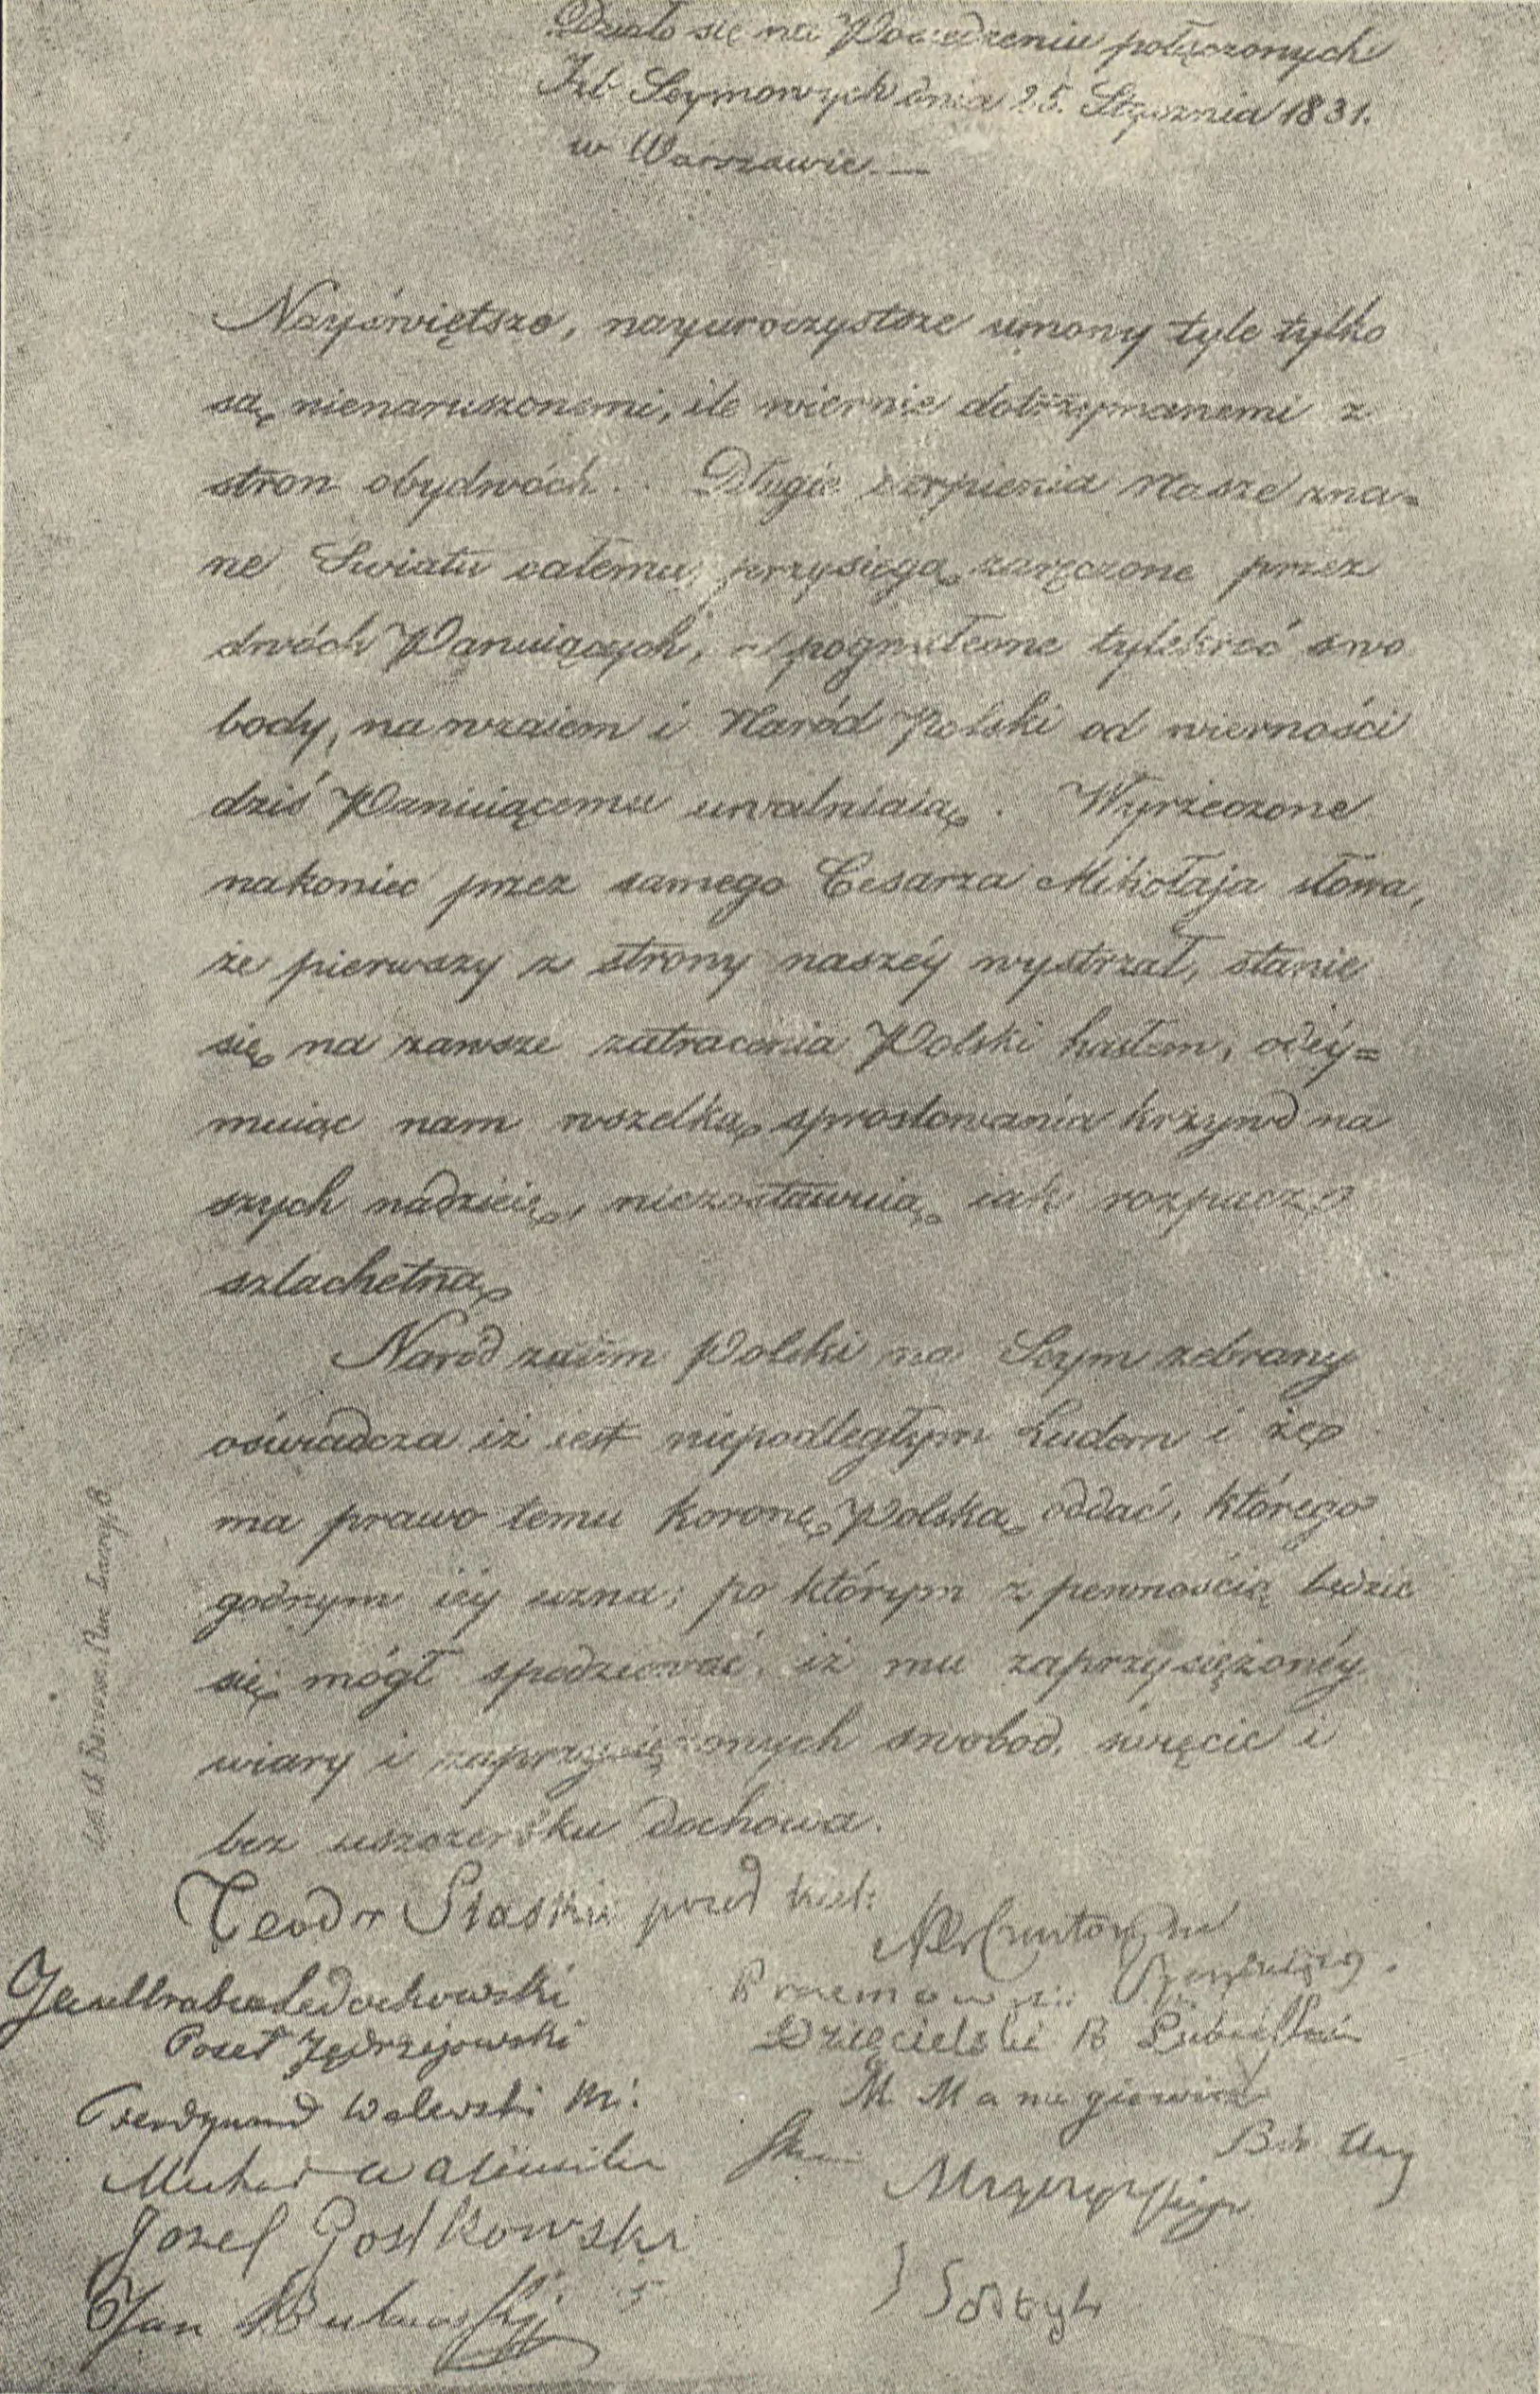 Działo się na Posiedzeniu połączonych
Izb Seymowych dnia 25. Stycznia 1831.
w Warszawie.—
Nayświętsze, nayuroczystsze umowy tyle tylko
są nienaruszonemi, ile wiernie dotrzymanemi z
stron obydwóch. Długie cierpienia Nasze zna=
ne Swiatu całemu, przysięgą zaręczone przez
dwóch Panuiących, a pogwałcone tylekroć swo
body, nawzaiem i Naród Polski od wierności
dziś Panuiącemu uwalniaią. Wyrzeczone
nakoniec przez samego Cesarza Mikołaja słowa,
że pierwszy z strony naszéy wystrzał, stanie
się na zawsze zatracenia Polski hasłem, odéy=
muiąc nam wszelką sprostowania krzywd na
szych nadzieię, niezostawuią iak rozpacz
szlachetną
Naród zatem Polski na Seym zebrany
oświadcza iż iest niepodległym Ludem i że
ma prawo temu Koronę Polską oddać, którego
godnym iéy uzna; po którym z pewnością będzie
się mógł spodziewać, iż mu zaprzysiężonéy
wiary i zaprzysiężonych swobod, święcie i
bez uszczerbku dochowa.
Teodor
Jan Hrabia Ledochowski
Poseł Jędrzejowski
Ferdynand Walewski
Michał
Józef Gostkowski
Jan
Dzięcielski B Lubieński
M
J Sołtyk